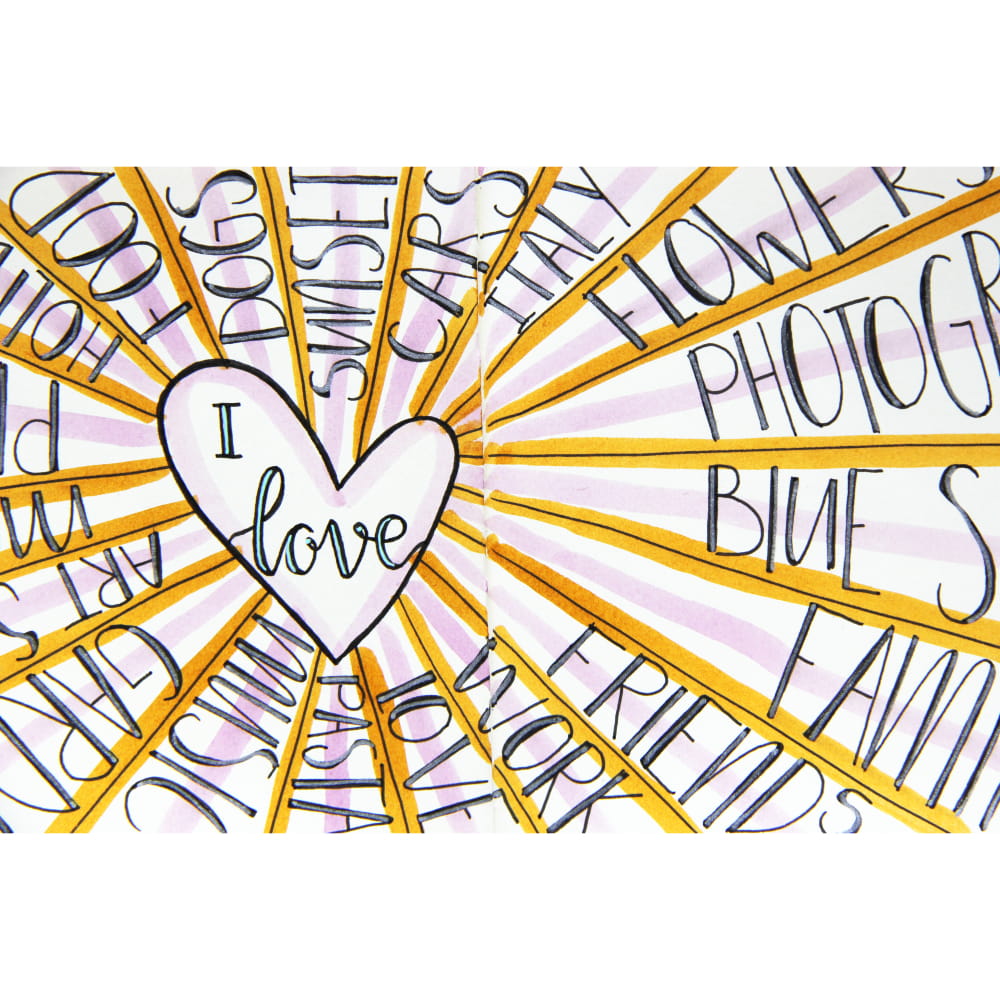 I
love
FOOD
DOGS
SUNSET
CARS
ITALY
FLOWERS
PHOTOGR
BLUE S
FAMI
FRIENDS
WORK
LOVE
PASTA
MUSIC
GARD
ART S
HOLI